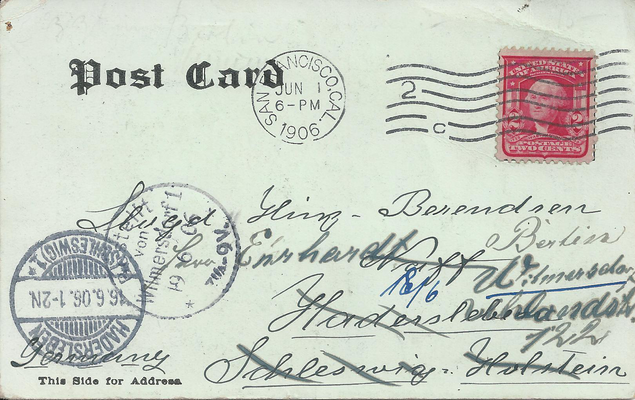 Post Card
SAN FRANCISCO, CAL.
JUN 1
6-PM
1906
2
C
UNITED STATES OF AMERICA
2 2
POSTAGE
TWO CENTS
Hinz-Berendsen
Frau Ehrhardt
Berlin
Wilmersdorf
18/6
Uhlandstr.
122
Hadersleben
Schleswig-Holstein
Germany
Bestellt
vom
Wilmersdorf 1
19/6.06.
HADERSLEBEN
16.6.06.1-2N.
(SCHLESWIG) 1
This Side for Address